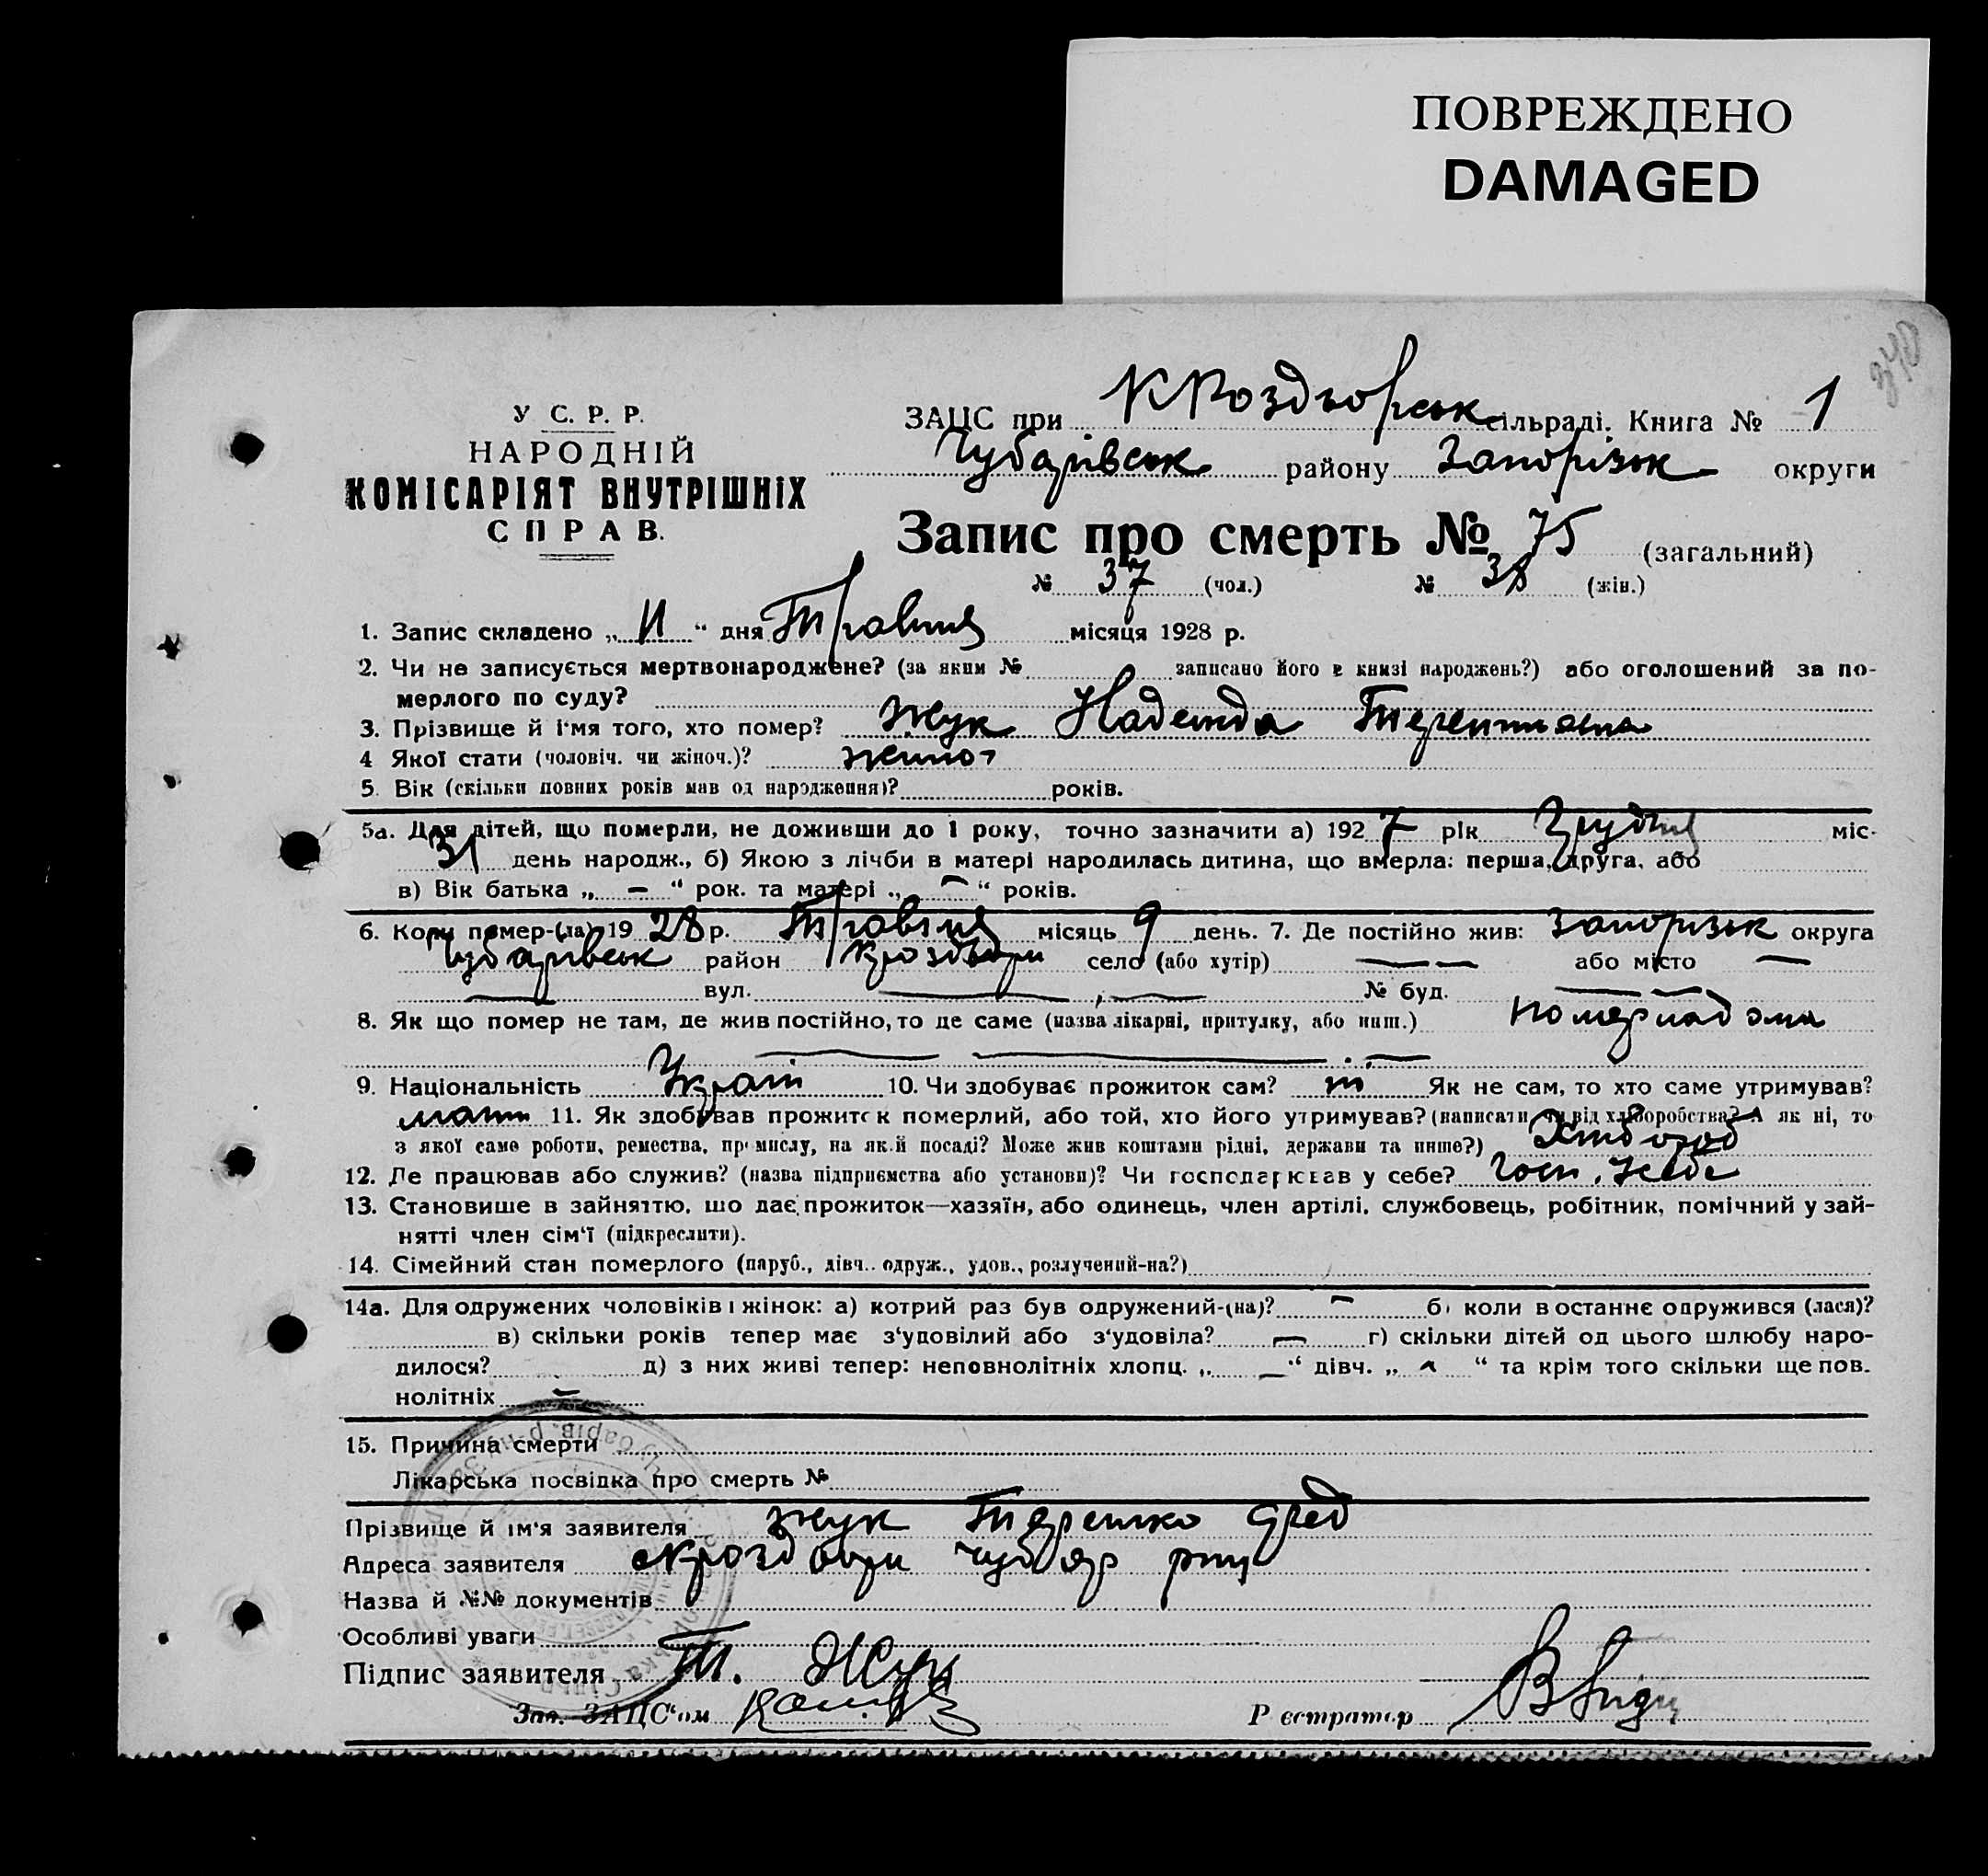 ПОВРЕЖДЕНО
DAMAGED
У С. Р. Р.
НАРОДНІЙ
КОМІСАРІЯТ ВНУТРІШНІХ
СПРАВ.
ЗАЦС при К Роздорськ сільраді. Книга № 1
Чубарівськ району Запорізьк округи
Запис про смерть № 75 (загальний)
№ 37 (чол.) № 38 (жін.)
1. Запис складено „ 11 “ дня Травня місяця 1928 р.
2. Чи не записується мертвонароджене? (за яким № записано його в книзі народжень?) або оголошений за по-
мерлого по суду?
3. Прізвище й ім'я того, хто помер? Жук Надежда
4 Якої стати (чоловіч. чи жіноч.)? жіноч
5. Вік (скільки повних років мав од народження)? років.
5а. Для дітей, що померли, не доживши до 1 року, точно зазначити а) 1927 рік Грудня міс.
31 день народж., б) Якою з лічби в матері народилась дитина, що вмерла: перша, друга, або
в) Вік батька „ – “ рок. та матері „ – “ років.
6. Коли помер-(ла) 1928 р. Травня місяць 9 день. 7. Де постійно жив: Запорізьк округа
Чубарівськ район село (або хутір) — — або місто —
— вул. — , — № буд. — —
8. Як що помер не там, де жив постійно, то де саме (назва лікарні, притулку, або инш.)
9. Національність Украї 10. Чи здобуває прожиток сам? ні Як не сам, то хто саме утримував?
мати 11. Як здобував прожиток померлий, або той, хто його утримував? (написати чи від хліборобства? А як ні, то
з якої саме роботи, ремества, промислу, на якій посаді? Може жив коштами рідні, держави та инше?)
12. Де працював або служив? (назва підприємства або установи)? Чи господарював у себе? Госп. у себе
13. Становище в зайняттю, що дає прожиток—хазяїн, або одинець, член артілі, службовець, робітник, помічний у зай-
нятті член сім'ї (підкреслити).
14. Сімейний стан померлого (паруб., дівч., одруж., удов., розлучений-на?)
14а. Для одружених чоловіків і жінок: а) котрий раз був одружений-(на)? – б) коли в останнє одружився (лася)?
в) скільки років тепер має з'удовілий або з'удовіла? – г) скільки дітей од цього шлюбу наро-
дилося? д) з них живі тепер: неповнолітніх хлопц. „ – “ дівч. „ – “ та крім того скільки ще пов-
нолітніх –
15. Причина смерти
Лікарська посвідка про смерть №
Прізвище й ім'я заявителя Жук Терешко
Адреса заявителя
Назва й №№ документів
Особливі уваги
Підпис заявителя Т. Жук
Зав. ЗАЦС'ом
Реєстратор